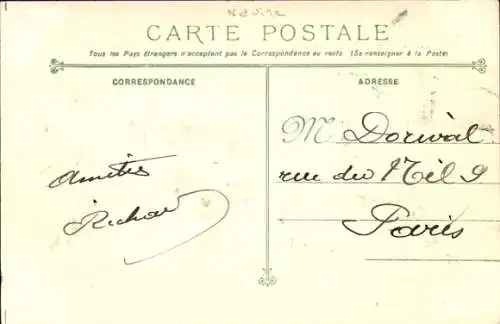 Névine
CARTE POSTALE
Tous les Pays étrangers n'acceptent pas la Correspondance au recto (Se renseigner à la Poste)
CORRESPONDANCE
Amitiés
Richard
ADRESSE
M Dorival
rue du Nil 9
Paris